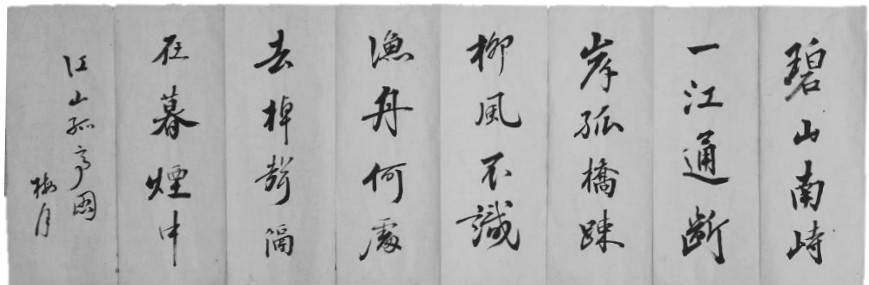 碧山南峙
一江通斷
岸孤橋踈
柳風不識
漁舟何處
去棹聲隔
在暮煙中
江山孤亭圖
梅月